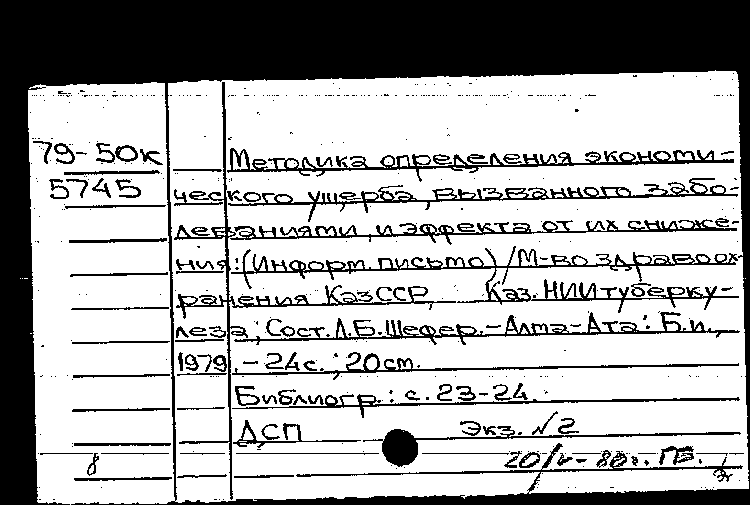 79-50к
5745
Методика определения экономи-
ческого ущерба, вызванного забо-
леваниями, и эффекта от их сниже-
ния: (Информ. письмо) / М-во здравоох-
ранения КазССР, Каз. НИИ туберку-
леза; Сост. Л.Б. Шефер. - Алма-Ата: Б.и.,
1979. - 24 с.; 20 см.
Библиогр.: с. 23-24.
ДСП Экз. №2
8 20/V-80г. ГБ.